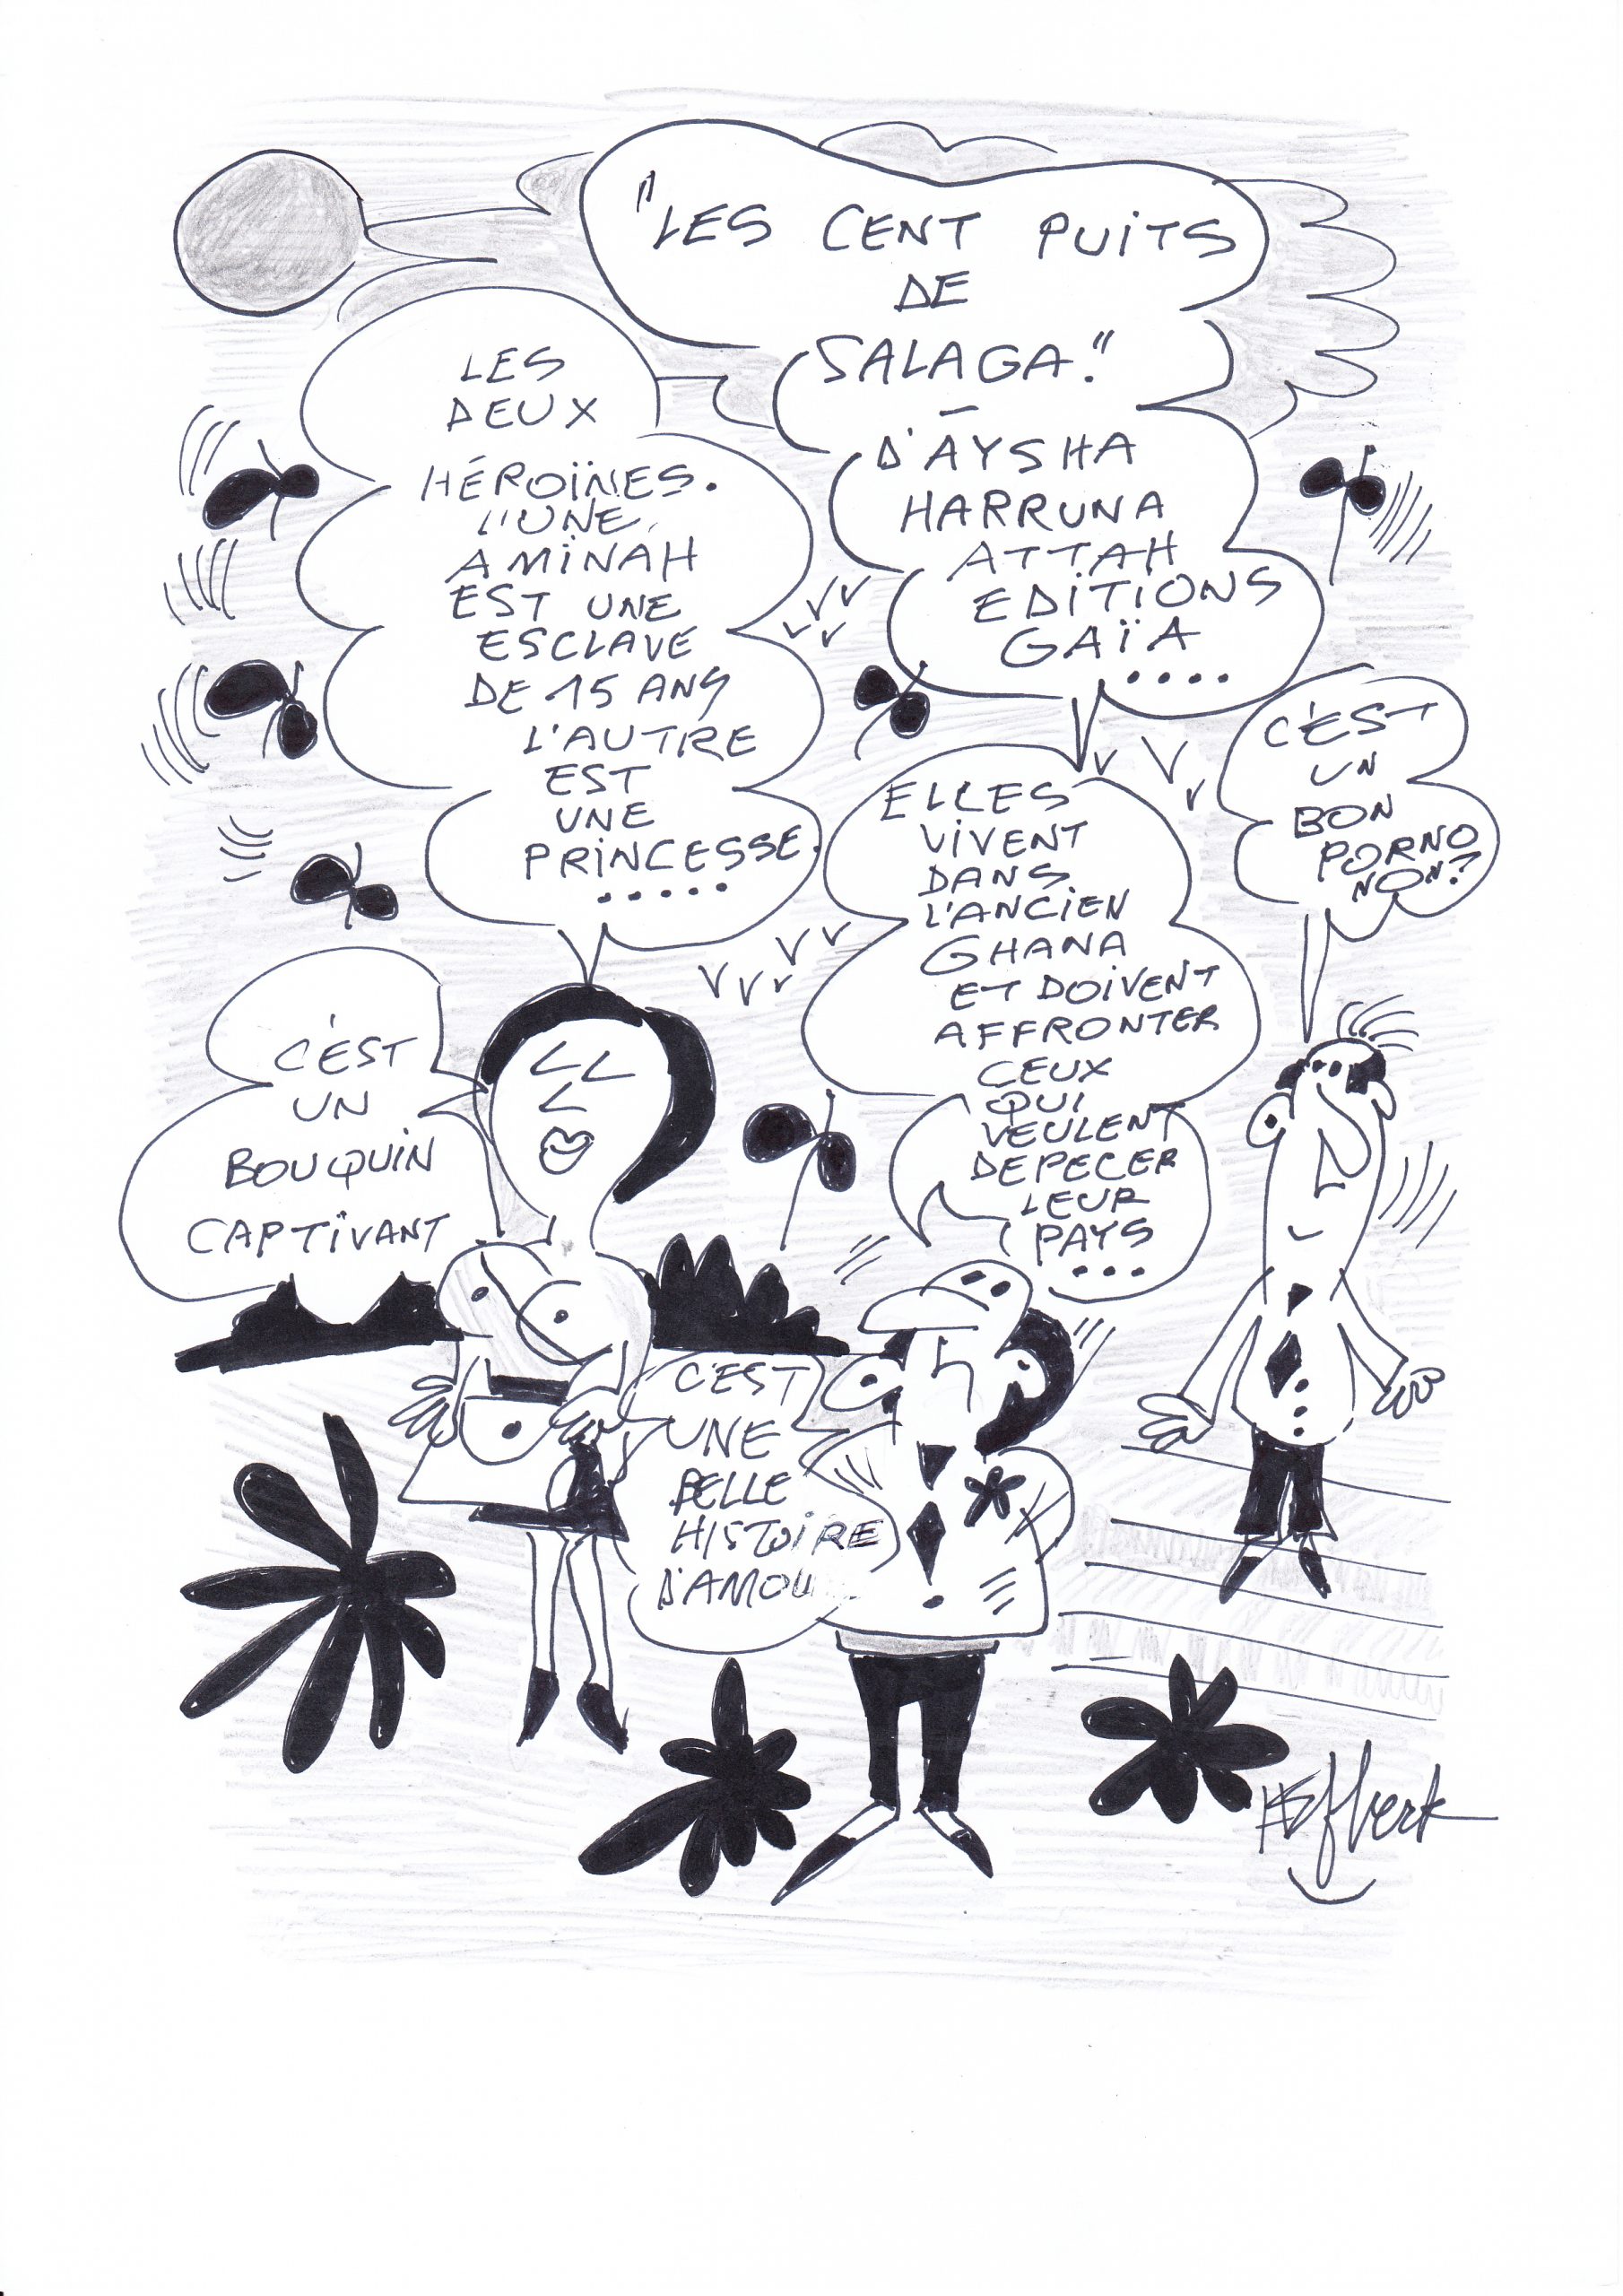 "LES CENT PUITS
DE
SALAGA."
—
D'AYSHA
HARRUNA
ATTAH
EDITIONS
GAÏA
....
LES
DEUX
HÉROÏNES.
L'UNE,
AMINAH
EST UNE
ESCLAVE
DE 15 ANS
L'AUTRE
EST
UNE
PRINCESSE.
.....
C'EST
UN
BON
PORNO
NON?
ELLES
VIVENT
DANS
L'ANCIEN
GHANA
ET DOIVENT
AFFRONTER
CEUX
QUI
VEULENT
DEPECER
LEUR
PAYS
...
C'EST
UN
BOUQUIN
CAPTIVANT
C'EST
UNE
BELLE
HISTOIRE
D'AMOU